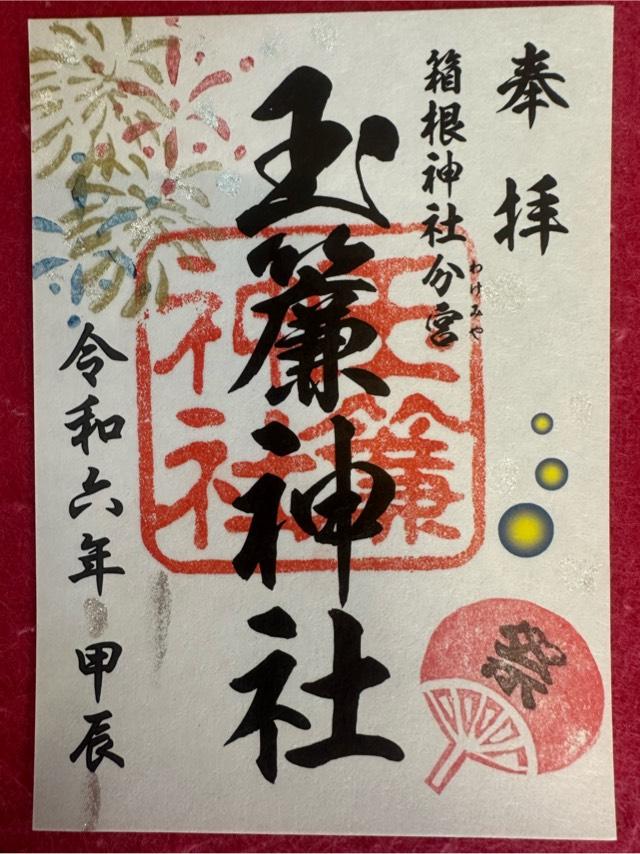 奉拝
箱根神社分宮
わけみや
玉簾神社
玉簾
神社
令和六年 甲辰
祭